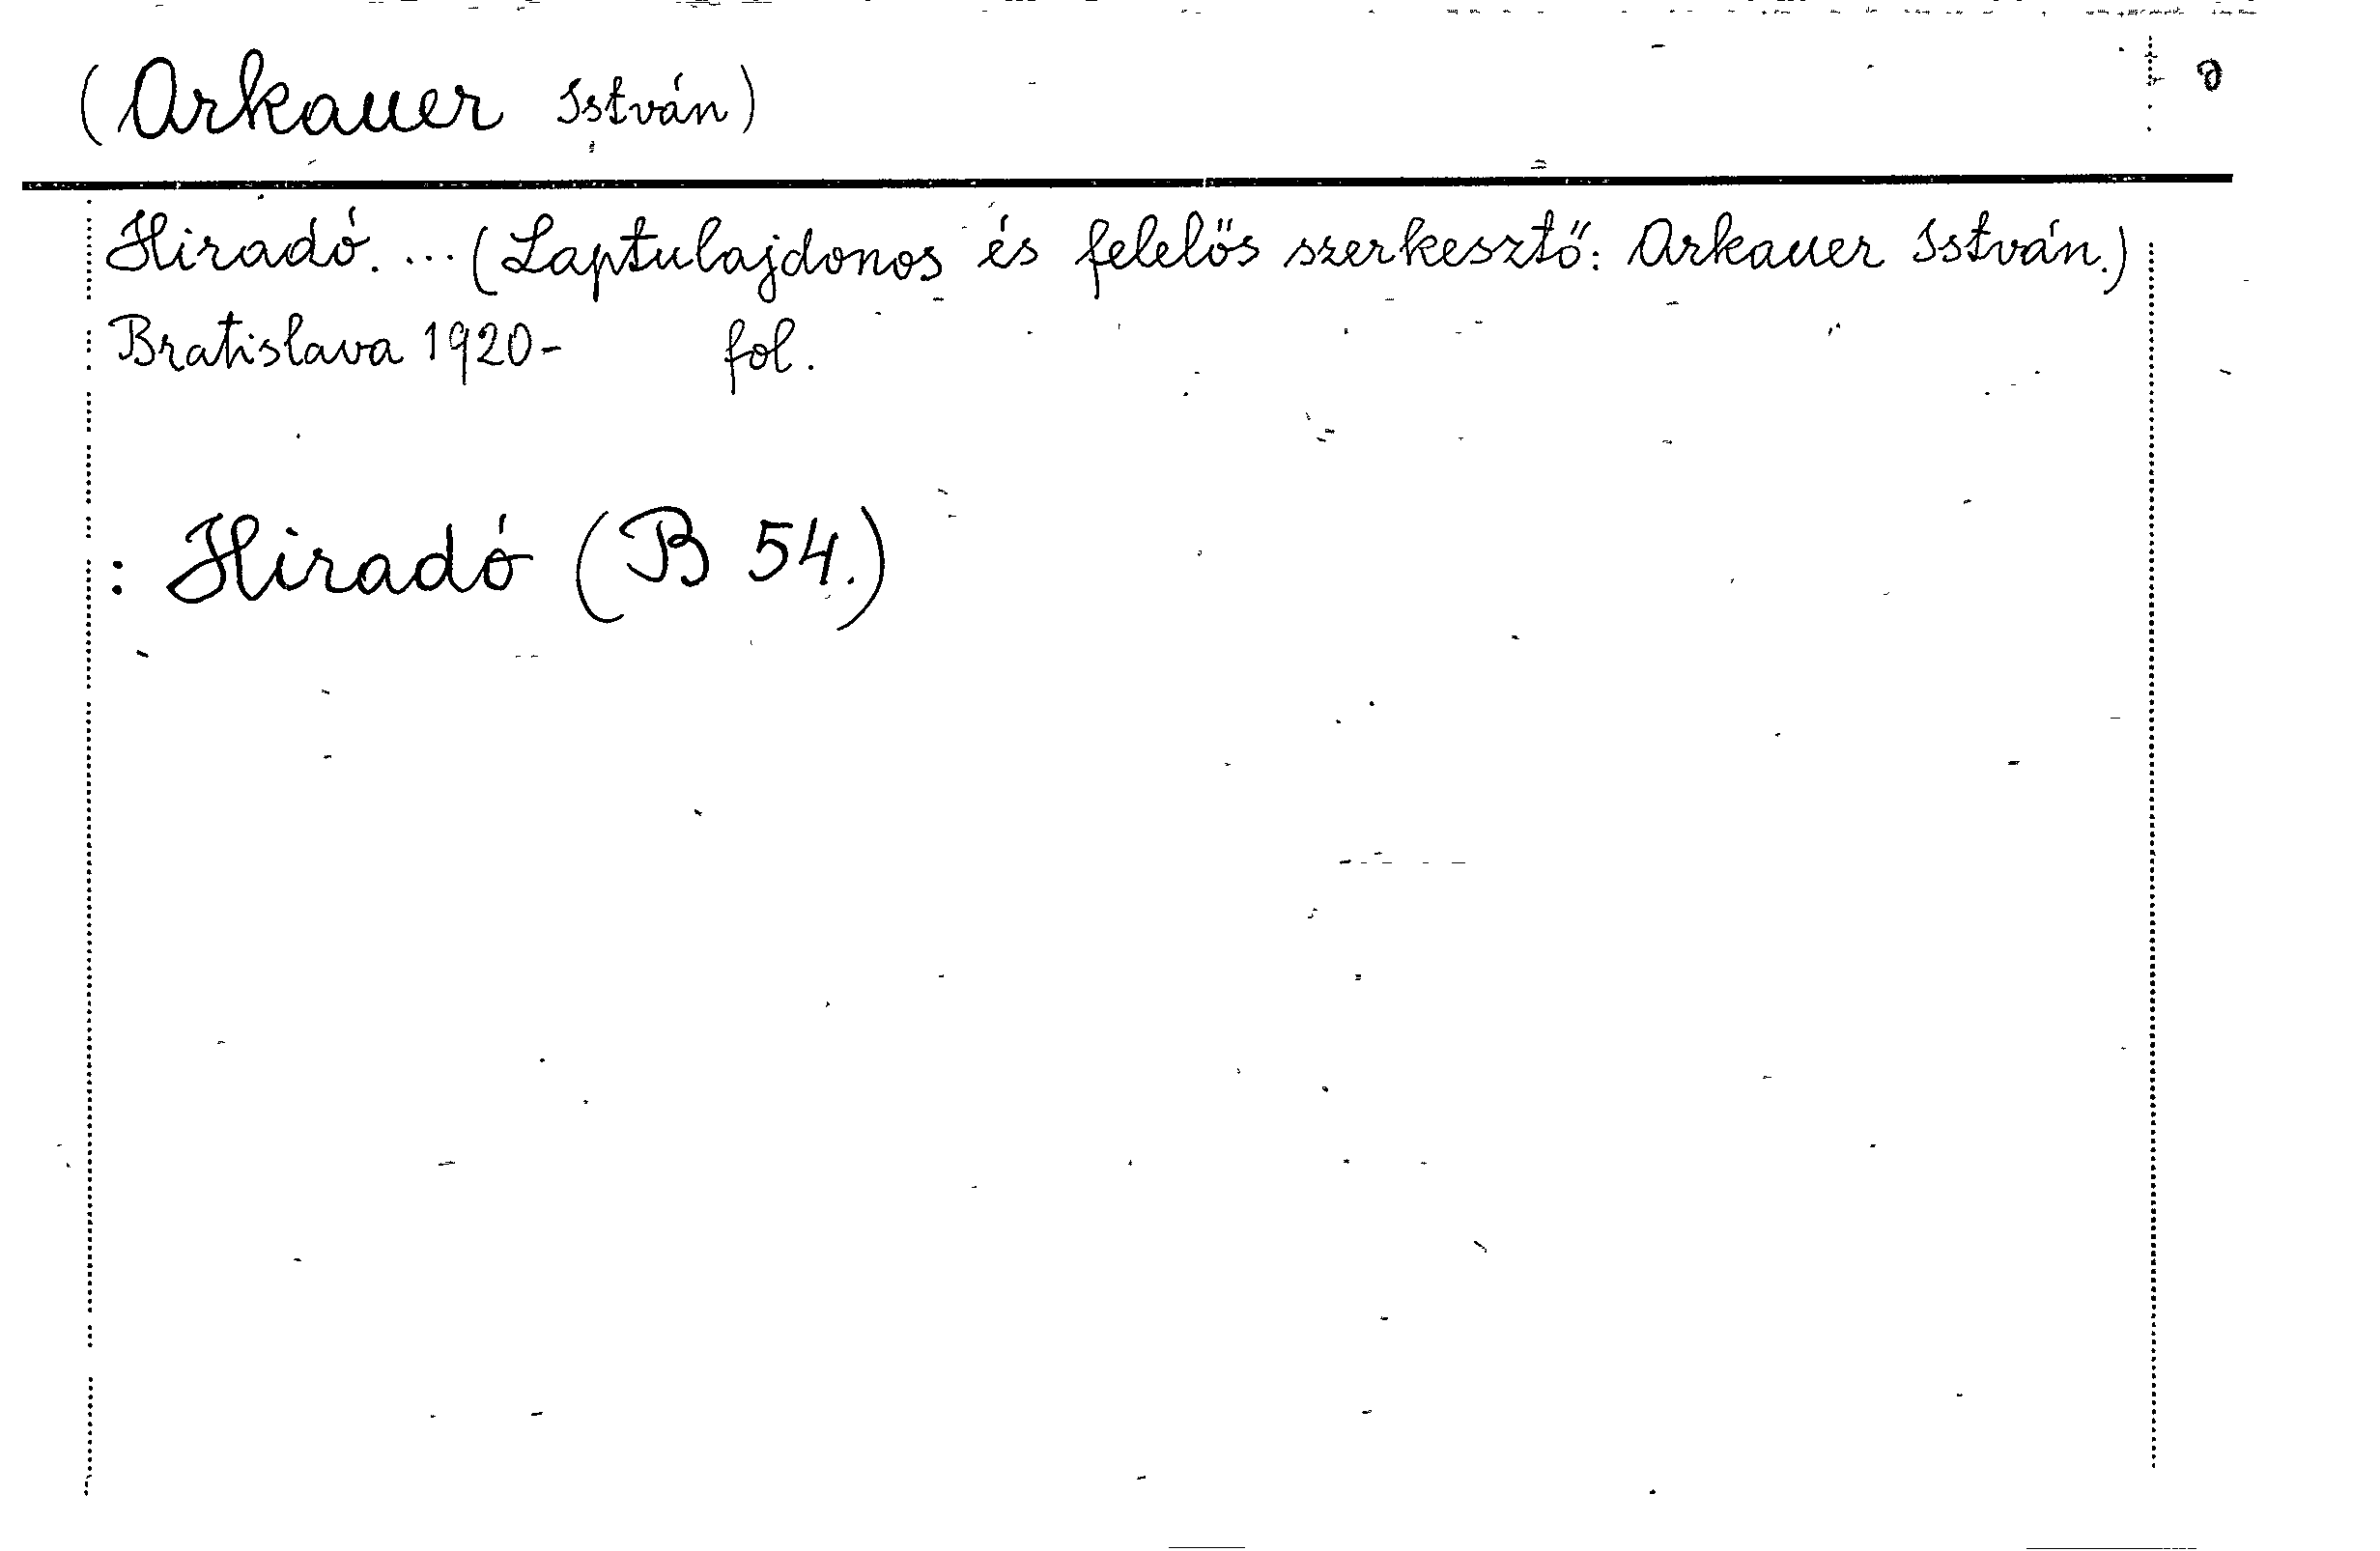 (Arkauer István)
Hiradó. ... (Laptulajdonos és felelős szerkesztő: Arkauer István.)
Bratislava 1920- fol.
: Hiradó (B 54.)